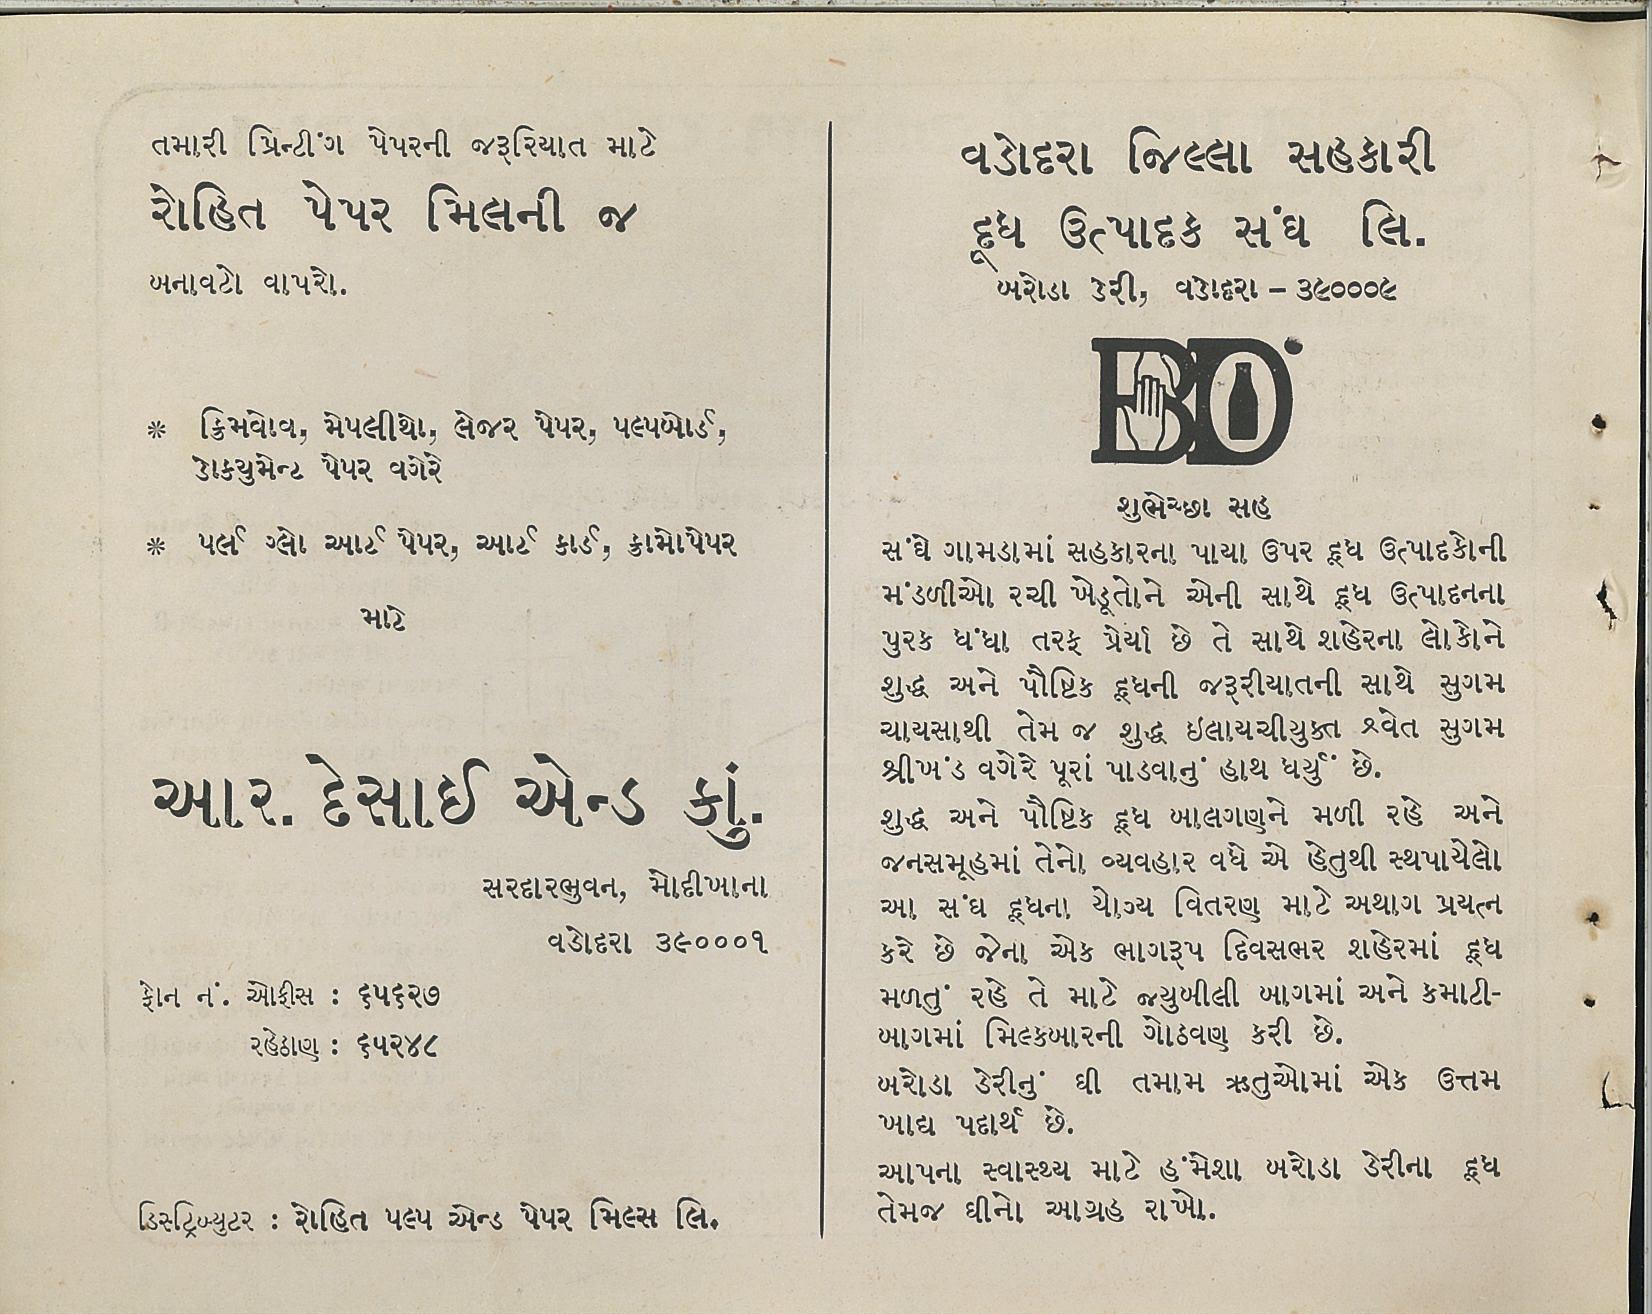 તમારી પ્રિન્ટીંગ પેપરની જરૂરિયાત માટે
રોહિત પેપર મિલની જ
બનાવટો વાપરો.
* ક્રિમવોવ, મેપલીથો, લેજર પેપર, પલ્પબોર્ડ,
ડોક્યુમેન્ટ પેપર વગેરે
* પર્લ ગ્લો આર્ટ પેપર, આર્ટ કાર્ડ, ક્રોમોપેપર
માટે
આર. દેસાઈ એન્ડ કું.
સરદારભુવન, મોદીખાના
વડોદરા ૩૯૦૦૦૧
ફોન નં. ઓફીસ : ૬૫૬૨૭
રહેઠાણ : ૬૫૨૪૮
ડિસ્ટ્રિબ્યુટર : રોહિત પલ્પ એન્ડ પેપર મિલ્સ લિ.
વડોદરા જિલ્લા સહકારી
દૂધ ઉત્પાદક સંઘ લિ.
બરોડા ડેરી, વડોદરા – ૩૯૦૦૦૯
BD
શુભેચ્છા સહ
સંઘે ગામડામાં સહકારના પાયા ઉપર દૂધ ઉત્પાદકોની
મંડળીઓ રચી ખેડૂતોને એની સાથે દૂધ ઉત્પાદનના
પુરક ધંધા તરફ પ્રેર્યા છે તે સાથે શહેરના લોકોને
શુદ્ધ અને પૌષ્ટિક દૂધની જરૂરીયાતની સાથે સુગમ
ચાયસાથી તેમ જ શુદ્ધ ઇલાયચીયુક્ત શ્વેત સુગમ
શ્રીખંડ વગેરે પૂરાં પાડવાનું હાથ ધર્યું છે.
શુદ્ધ અને પૌષ્ટિક દૂધ બાલગણને મળી રહે અને
જનસમૂહમાં તેનો વ્યવહાર વધે એ હેતુથી સ્થપાયેલો
આ સંઘ દૂધના યોગ્ય વિતરણ માટે અથાગ પ્રયત્ન
કરે છે જેના એક ભાગરૂપ દિવસભર શહેરમાં દૂધ
મળતું રહે તે માટે જ્યુબીલી બાગમાં અને કમાટી-
બાગમાં મિલ્કબારની ગોઠવણ કરી છે.
બરોડા ડેરીનું ઘી તમામ ઋતુઓમાં એક ઉત્તમ
ખાદ્ય પદાર્થ છે.
આપના સ્વાસ્થ્ય માટે હંમેશા બરોડા ડેરીના દૂધ
તેમજ ઘીનો આગ્રહ રાખો.